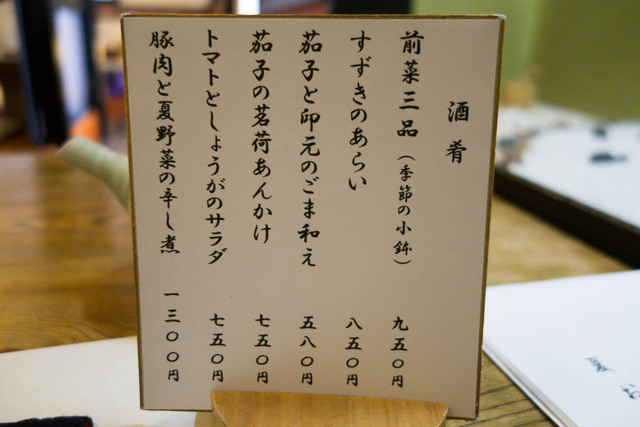 酒肴
前菜三品（季節の小鉢） 九五〇円
すずきのあらい 八五〇円
茄子と印元のごま和え 五八〇円
茄子の茗荷あんかけ 七五〇円
トマトとしょうがのサラダ 七五〇円
豚肉と夏野菜の辛し煮 一三〇〇円